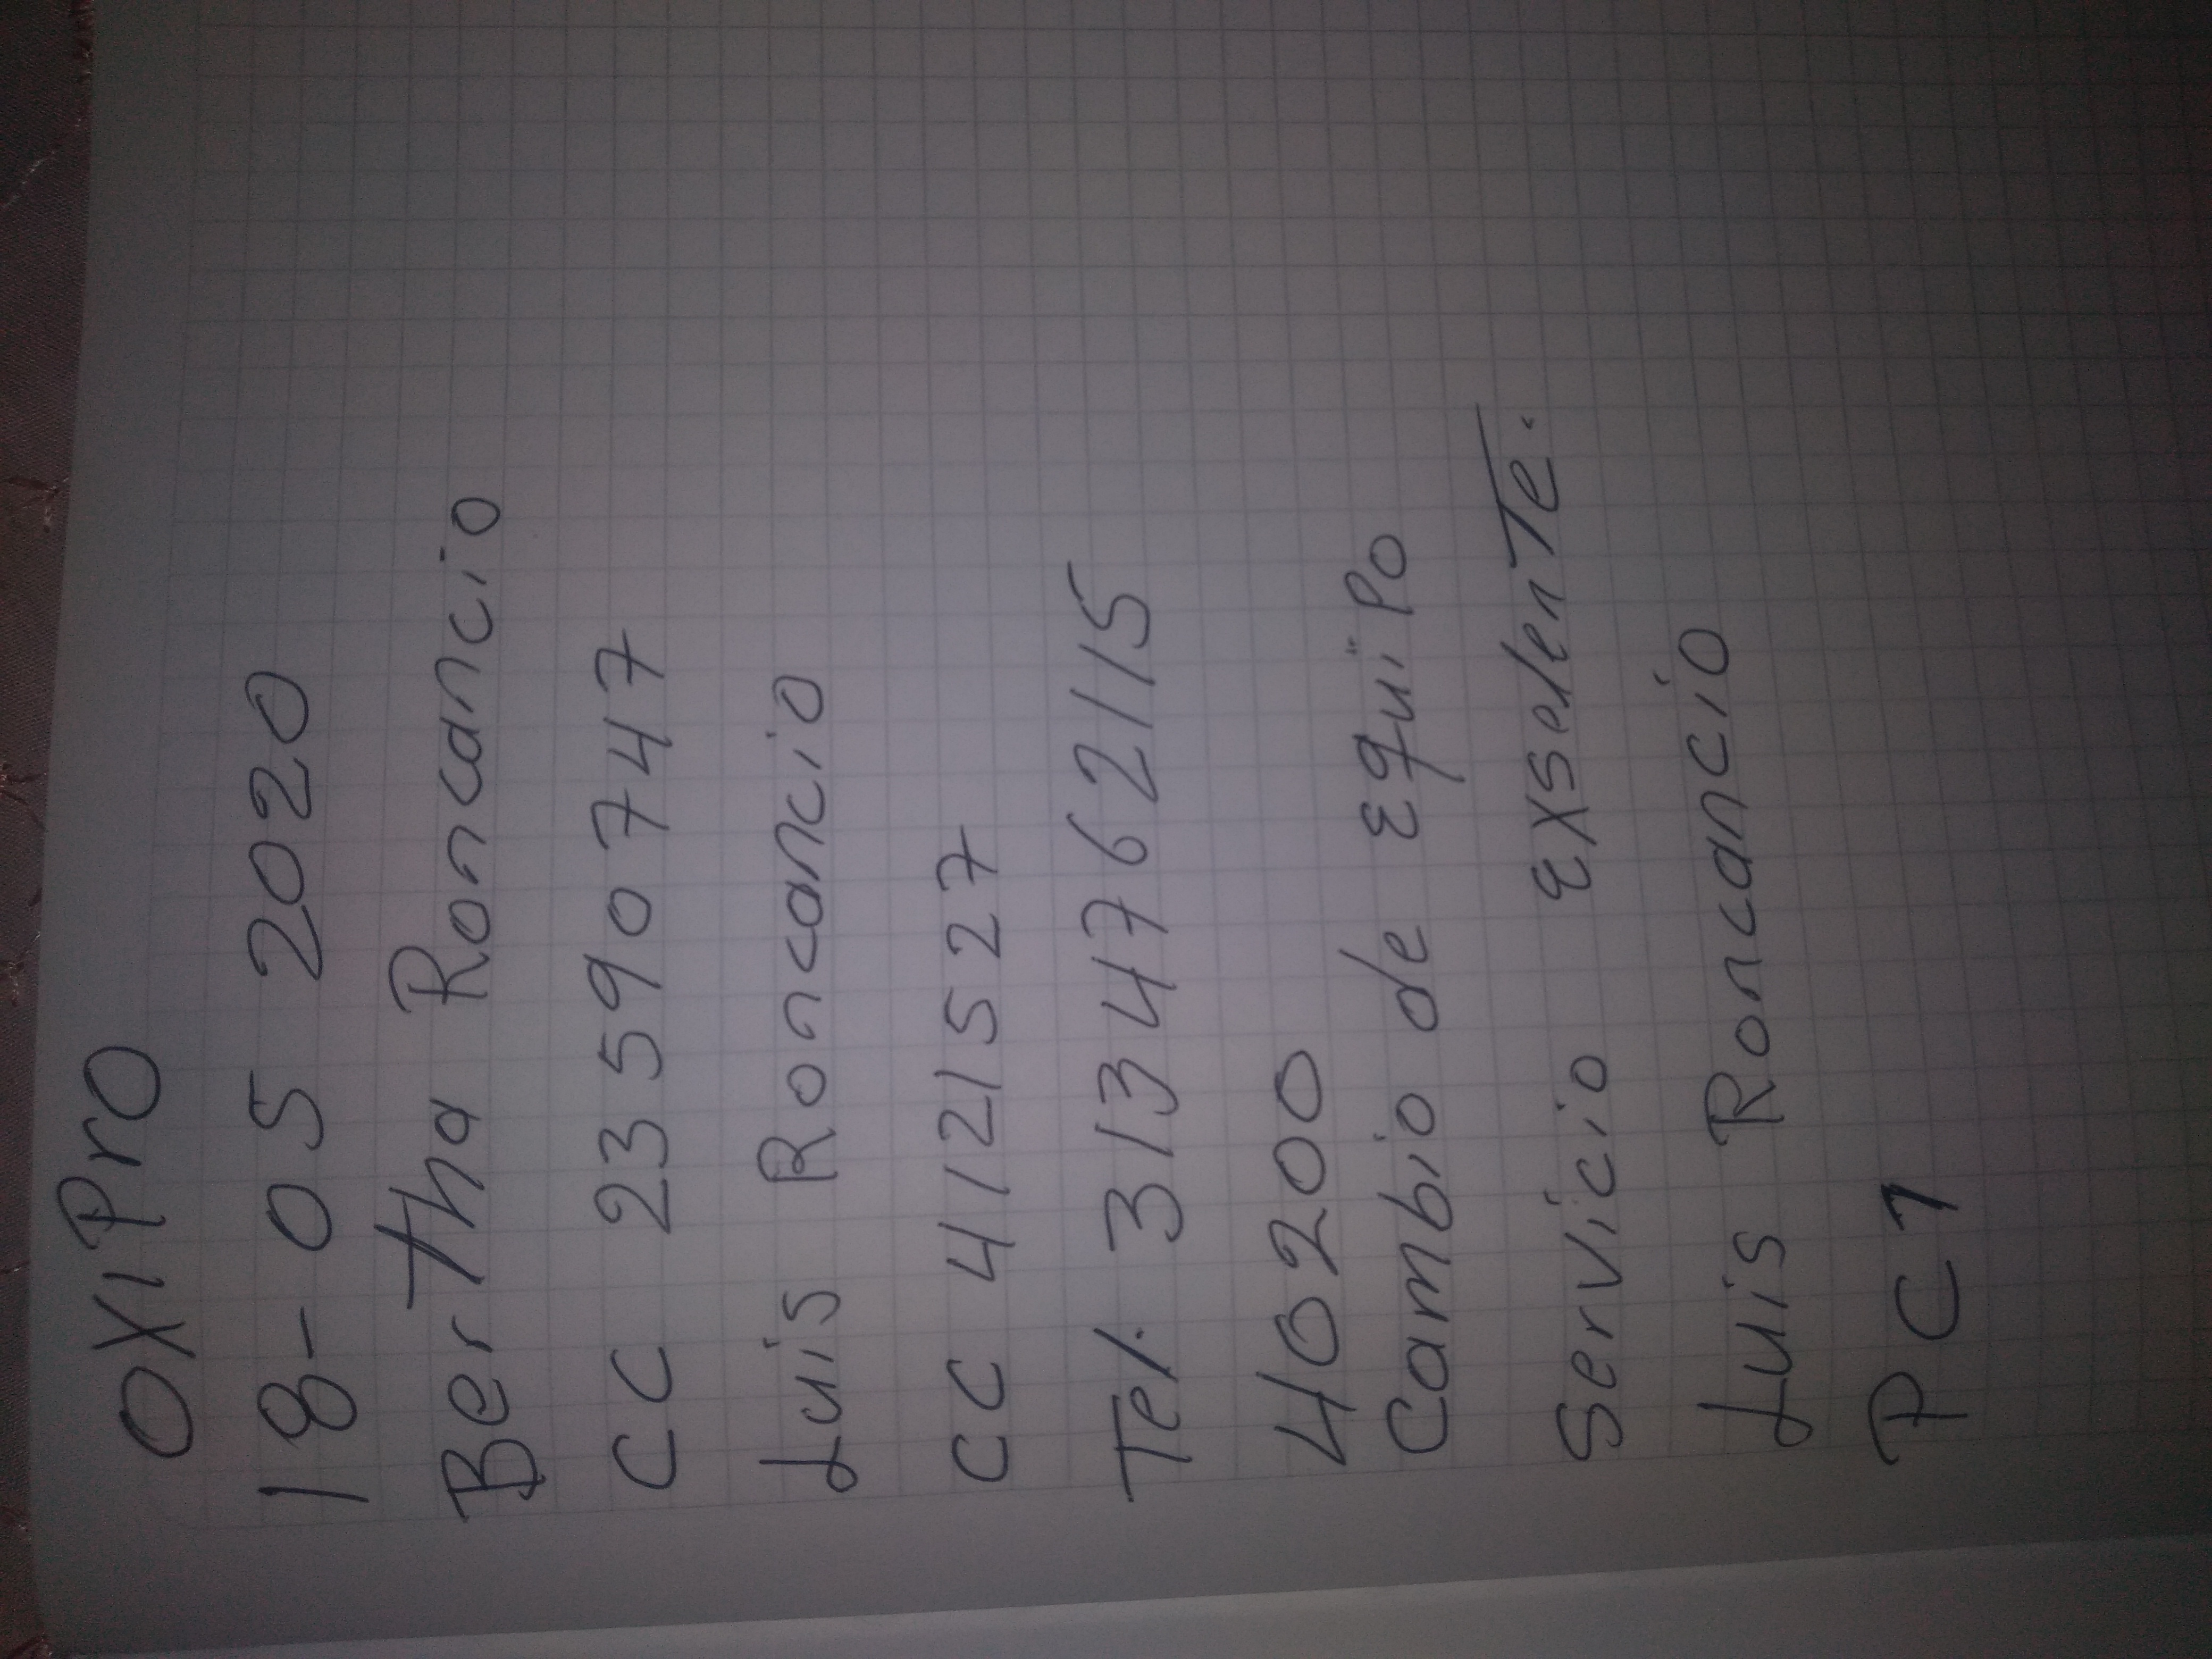 OXIPrO
18-05 2020
Bertha Roncancio
CC 23590747
Luis Roncancio
CC 4121527
Tel. 3134762115
40200
Cambio de EquiPo
Servicio ExselenTe.
Luis Roncancio
PC1